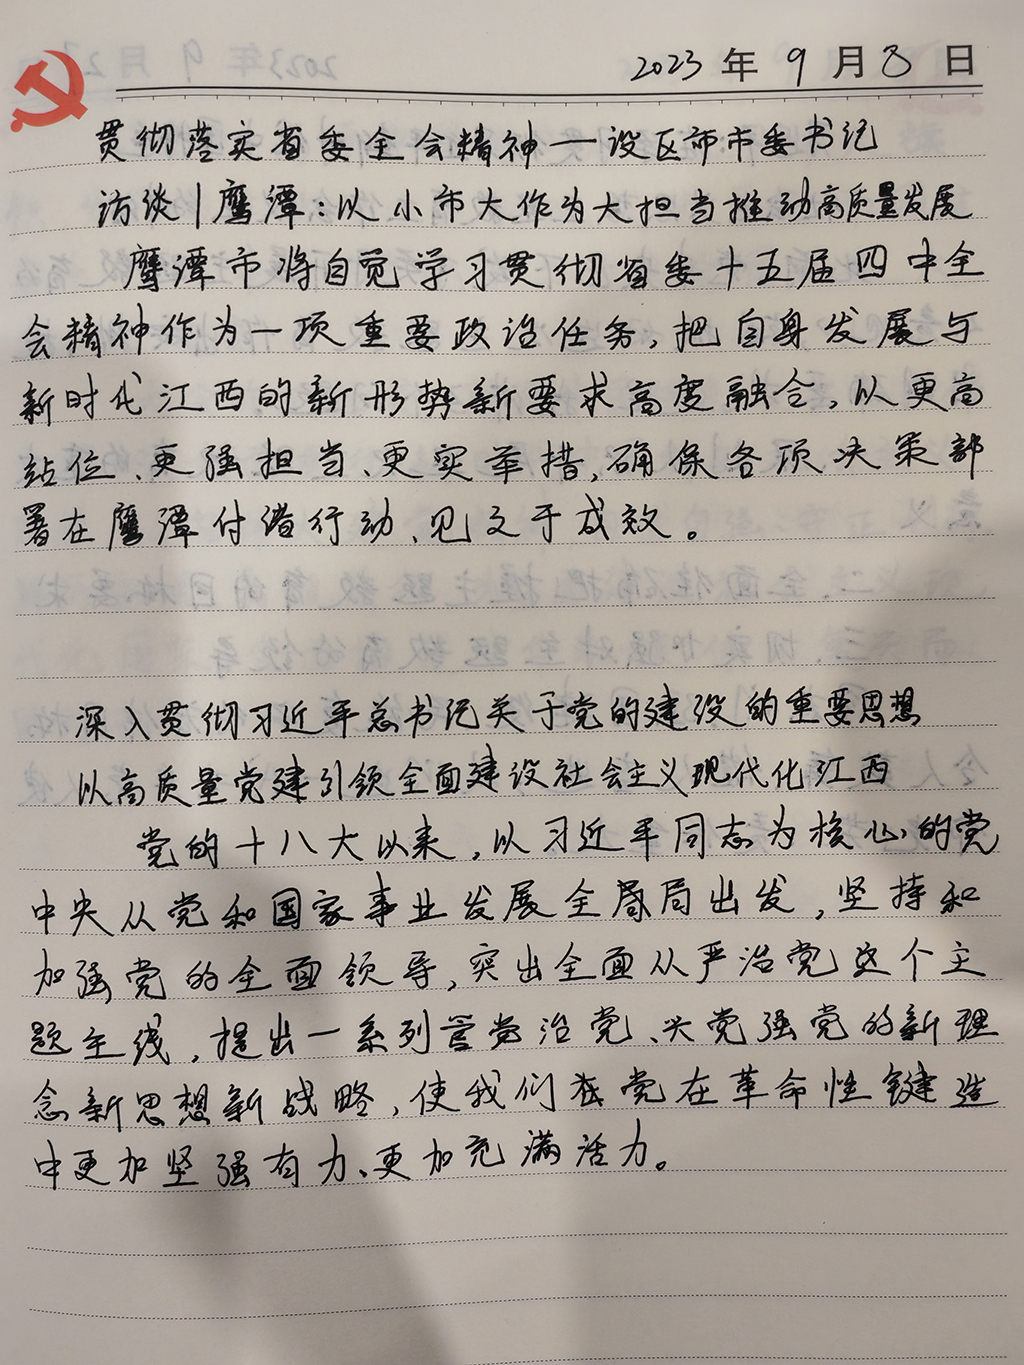 2023 年 9 月 8 日
贯彻落实省委全会精神—设区市市委书记
访谈|鹰潭:以小市大作为大担当推动高质量发展
鹰潭市将自觉学习贯彻省委十五届四中全
会精神作为一项重要政治任务,把自身发展与
新时代江西的新形势新要求高度融合,以更高
站位、更强担当、更实举措,确保各项决策部
署在鹰潭付诸行动、见之于成效。
深入贯彻习近平总书记关于党的建设的重要思想
以高质量党建引领全面建设社会主义现代化江西
党的十八大以来,以习近平同志为核心的党
中央从党和国家事业发展全局局出发,坚持和
加强党的全面领导,突出全面从严治党这个主
题主线,提出一系列管党治党、兴党强党的新理
念新思想新战略,使我们党在革命性锻造
中更加坚强有力、更加充满活力。